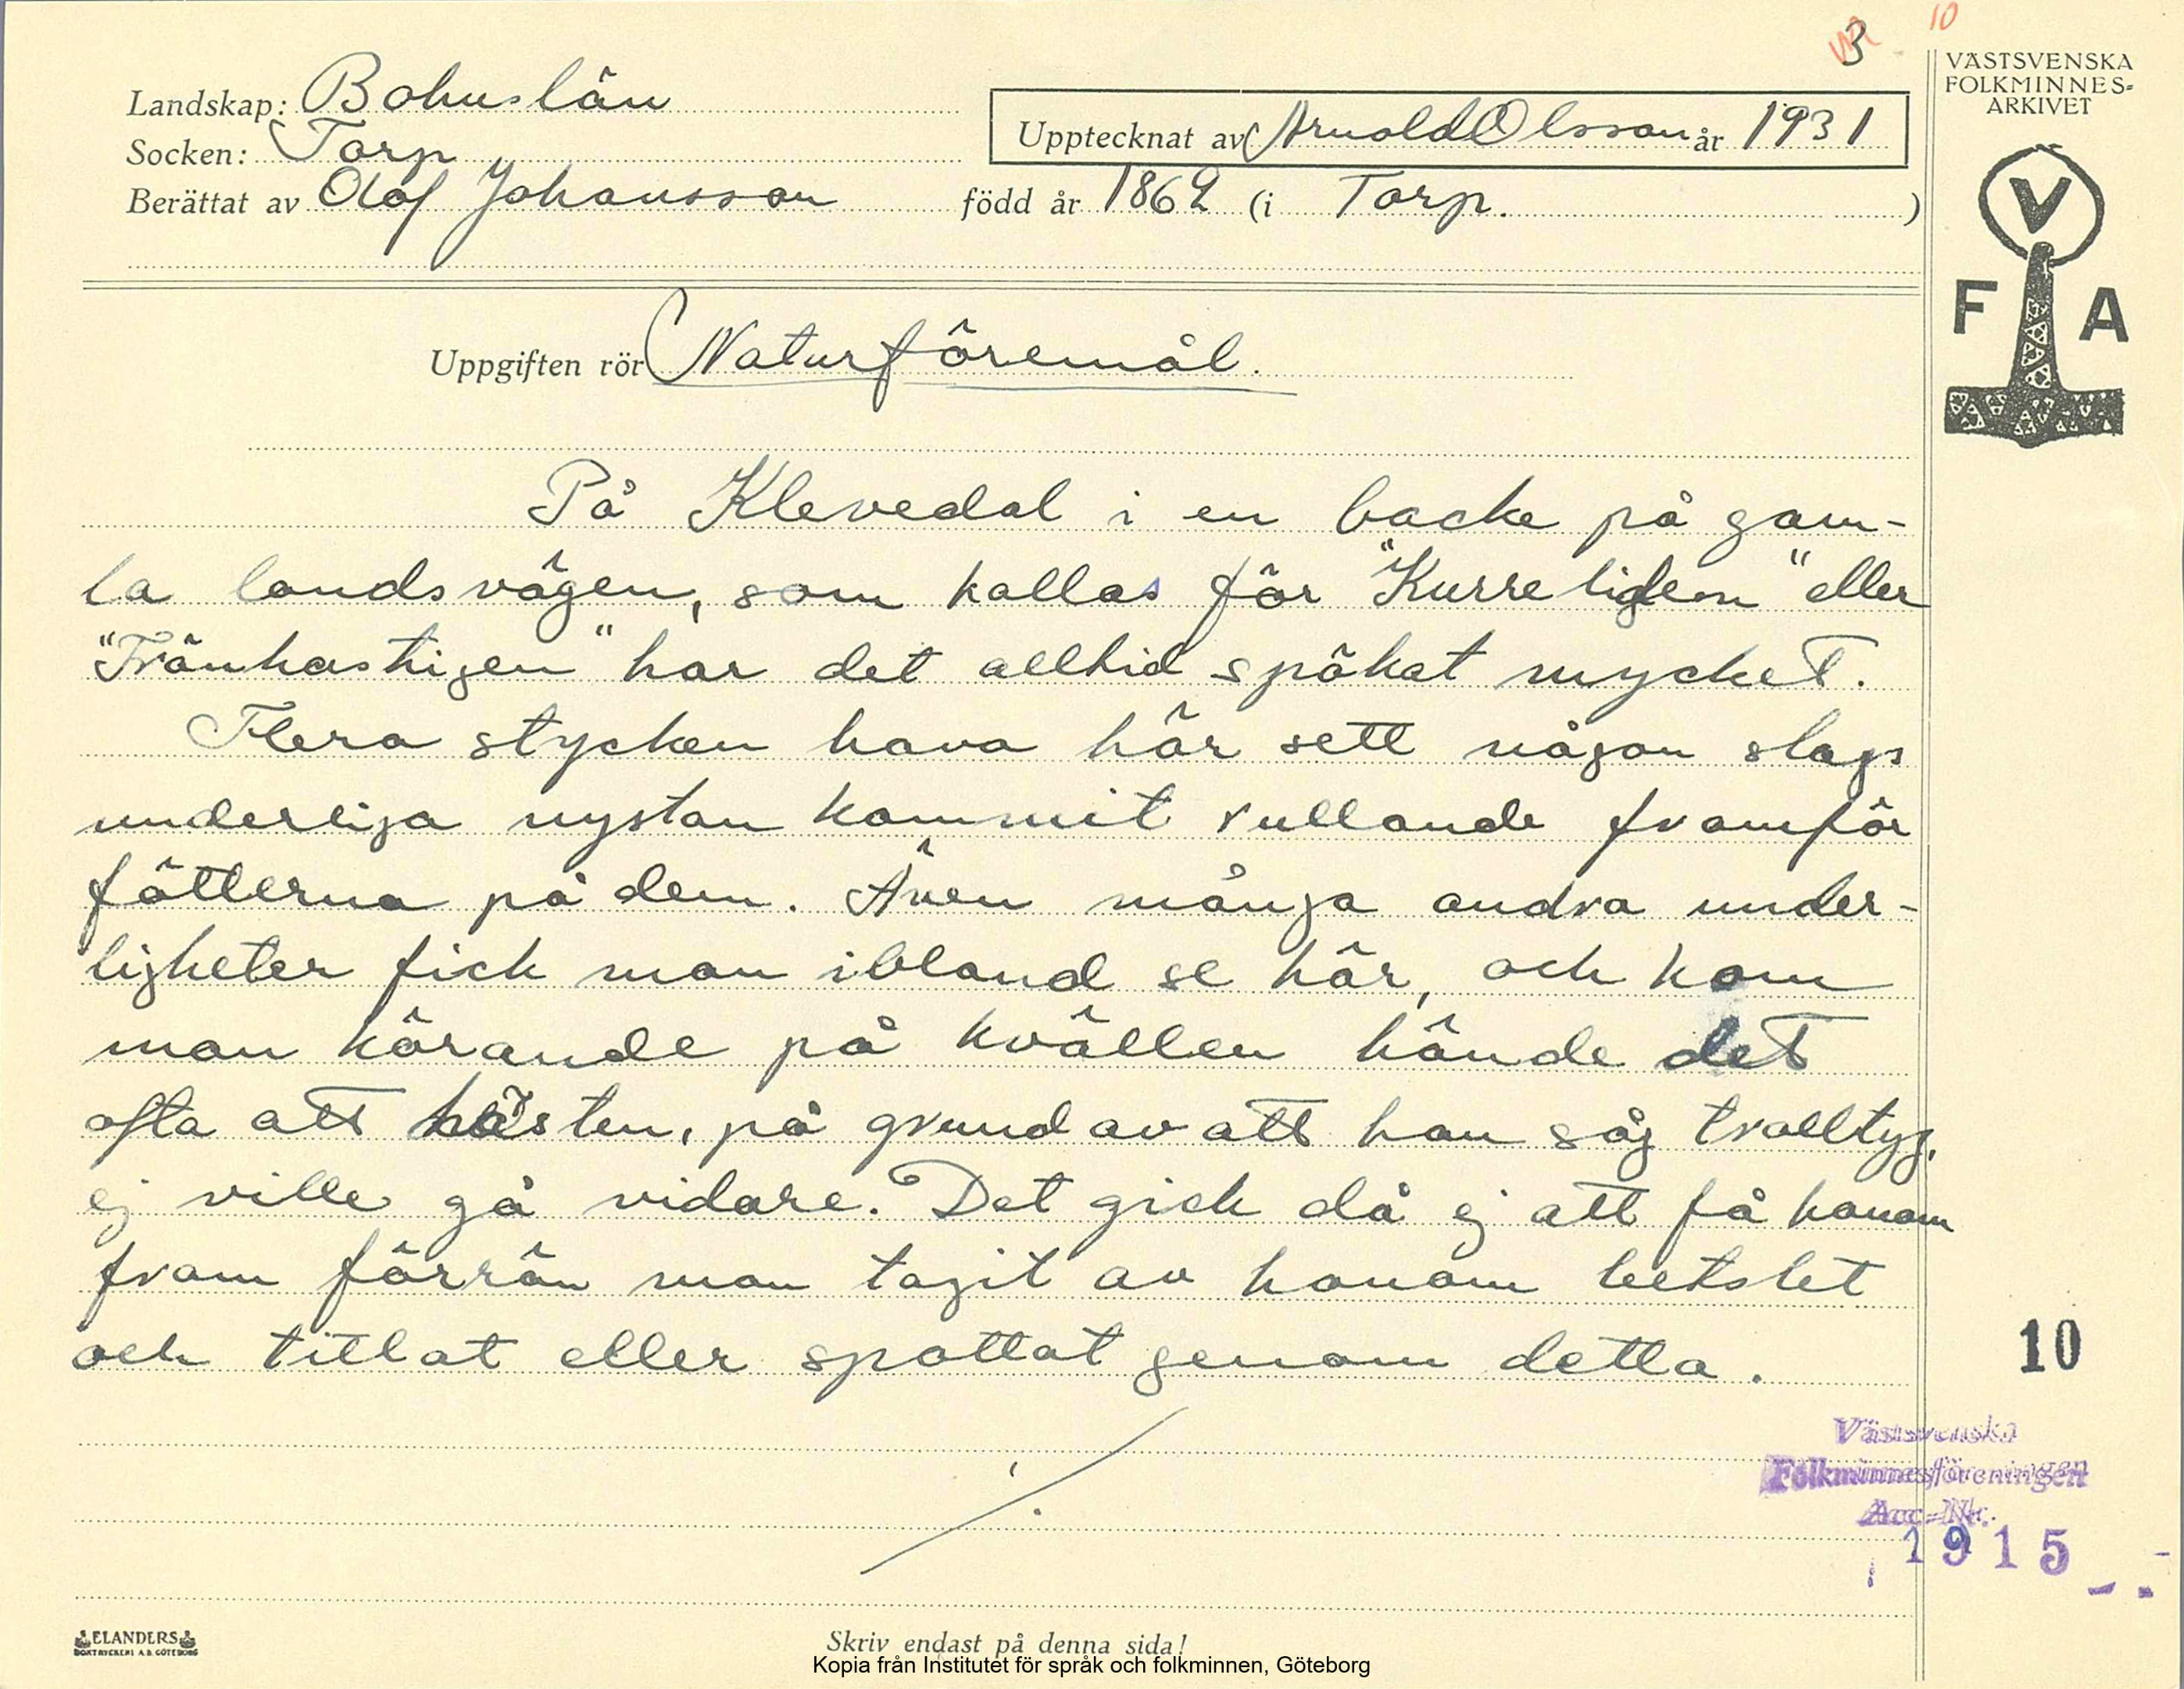 3 10
VÄSTSVENSKA
FOLKMINNES-
ARKIVET
V
F A
Landskap: Bohuslän
Socken: Torp
Upptecknat av Arnold Olsson år 1931
Berättat av Olof Johansson född år 1862 (i Torp. )
Uppgiften rör Naturföremål.
På Klevedal i en backe på gam-
la landsvägen, som kallas för "Kurreliden" eller
"Tränhastigen" har det alltid spökat mycket.
Flera stycken hava här sett någon slags
underliga nystan kommit rullande framför
fötterna på dem. Även många andra under-
ligheter fick man ibland se här, och kom
man körande på kvällen hände det
ofta att hästen, på grund av att han såg trolltyg,
ej ville gå vidare. Det gick då ej att få honom
fram förrän man tagit av honom betslet
och tittat eller spottat genom detta.
10
Västsvenska
Folkminnesföreningen
Acc-Nr.
1915
ELANDERS
BOKTRYCKERI A.B. GÖTEBORG
Skriv endast på denna sida!
Kopia från Institutet för språk och folkminnen, Göteborg